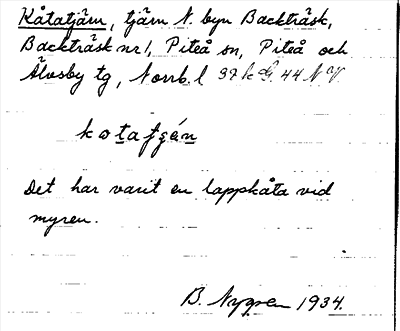 Kåtatjärn, tjärn N. byn Backträsk,
Backträsk nr 1, Piteå sn, Piteå och
Älvsby tg, Norrb. l 37 k G. 44 N V
Det har varit en lappkåta vid
myren.
B. Nygren 1934